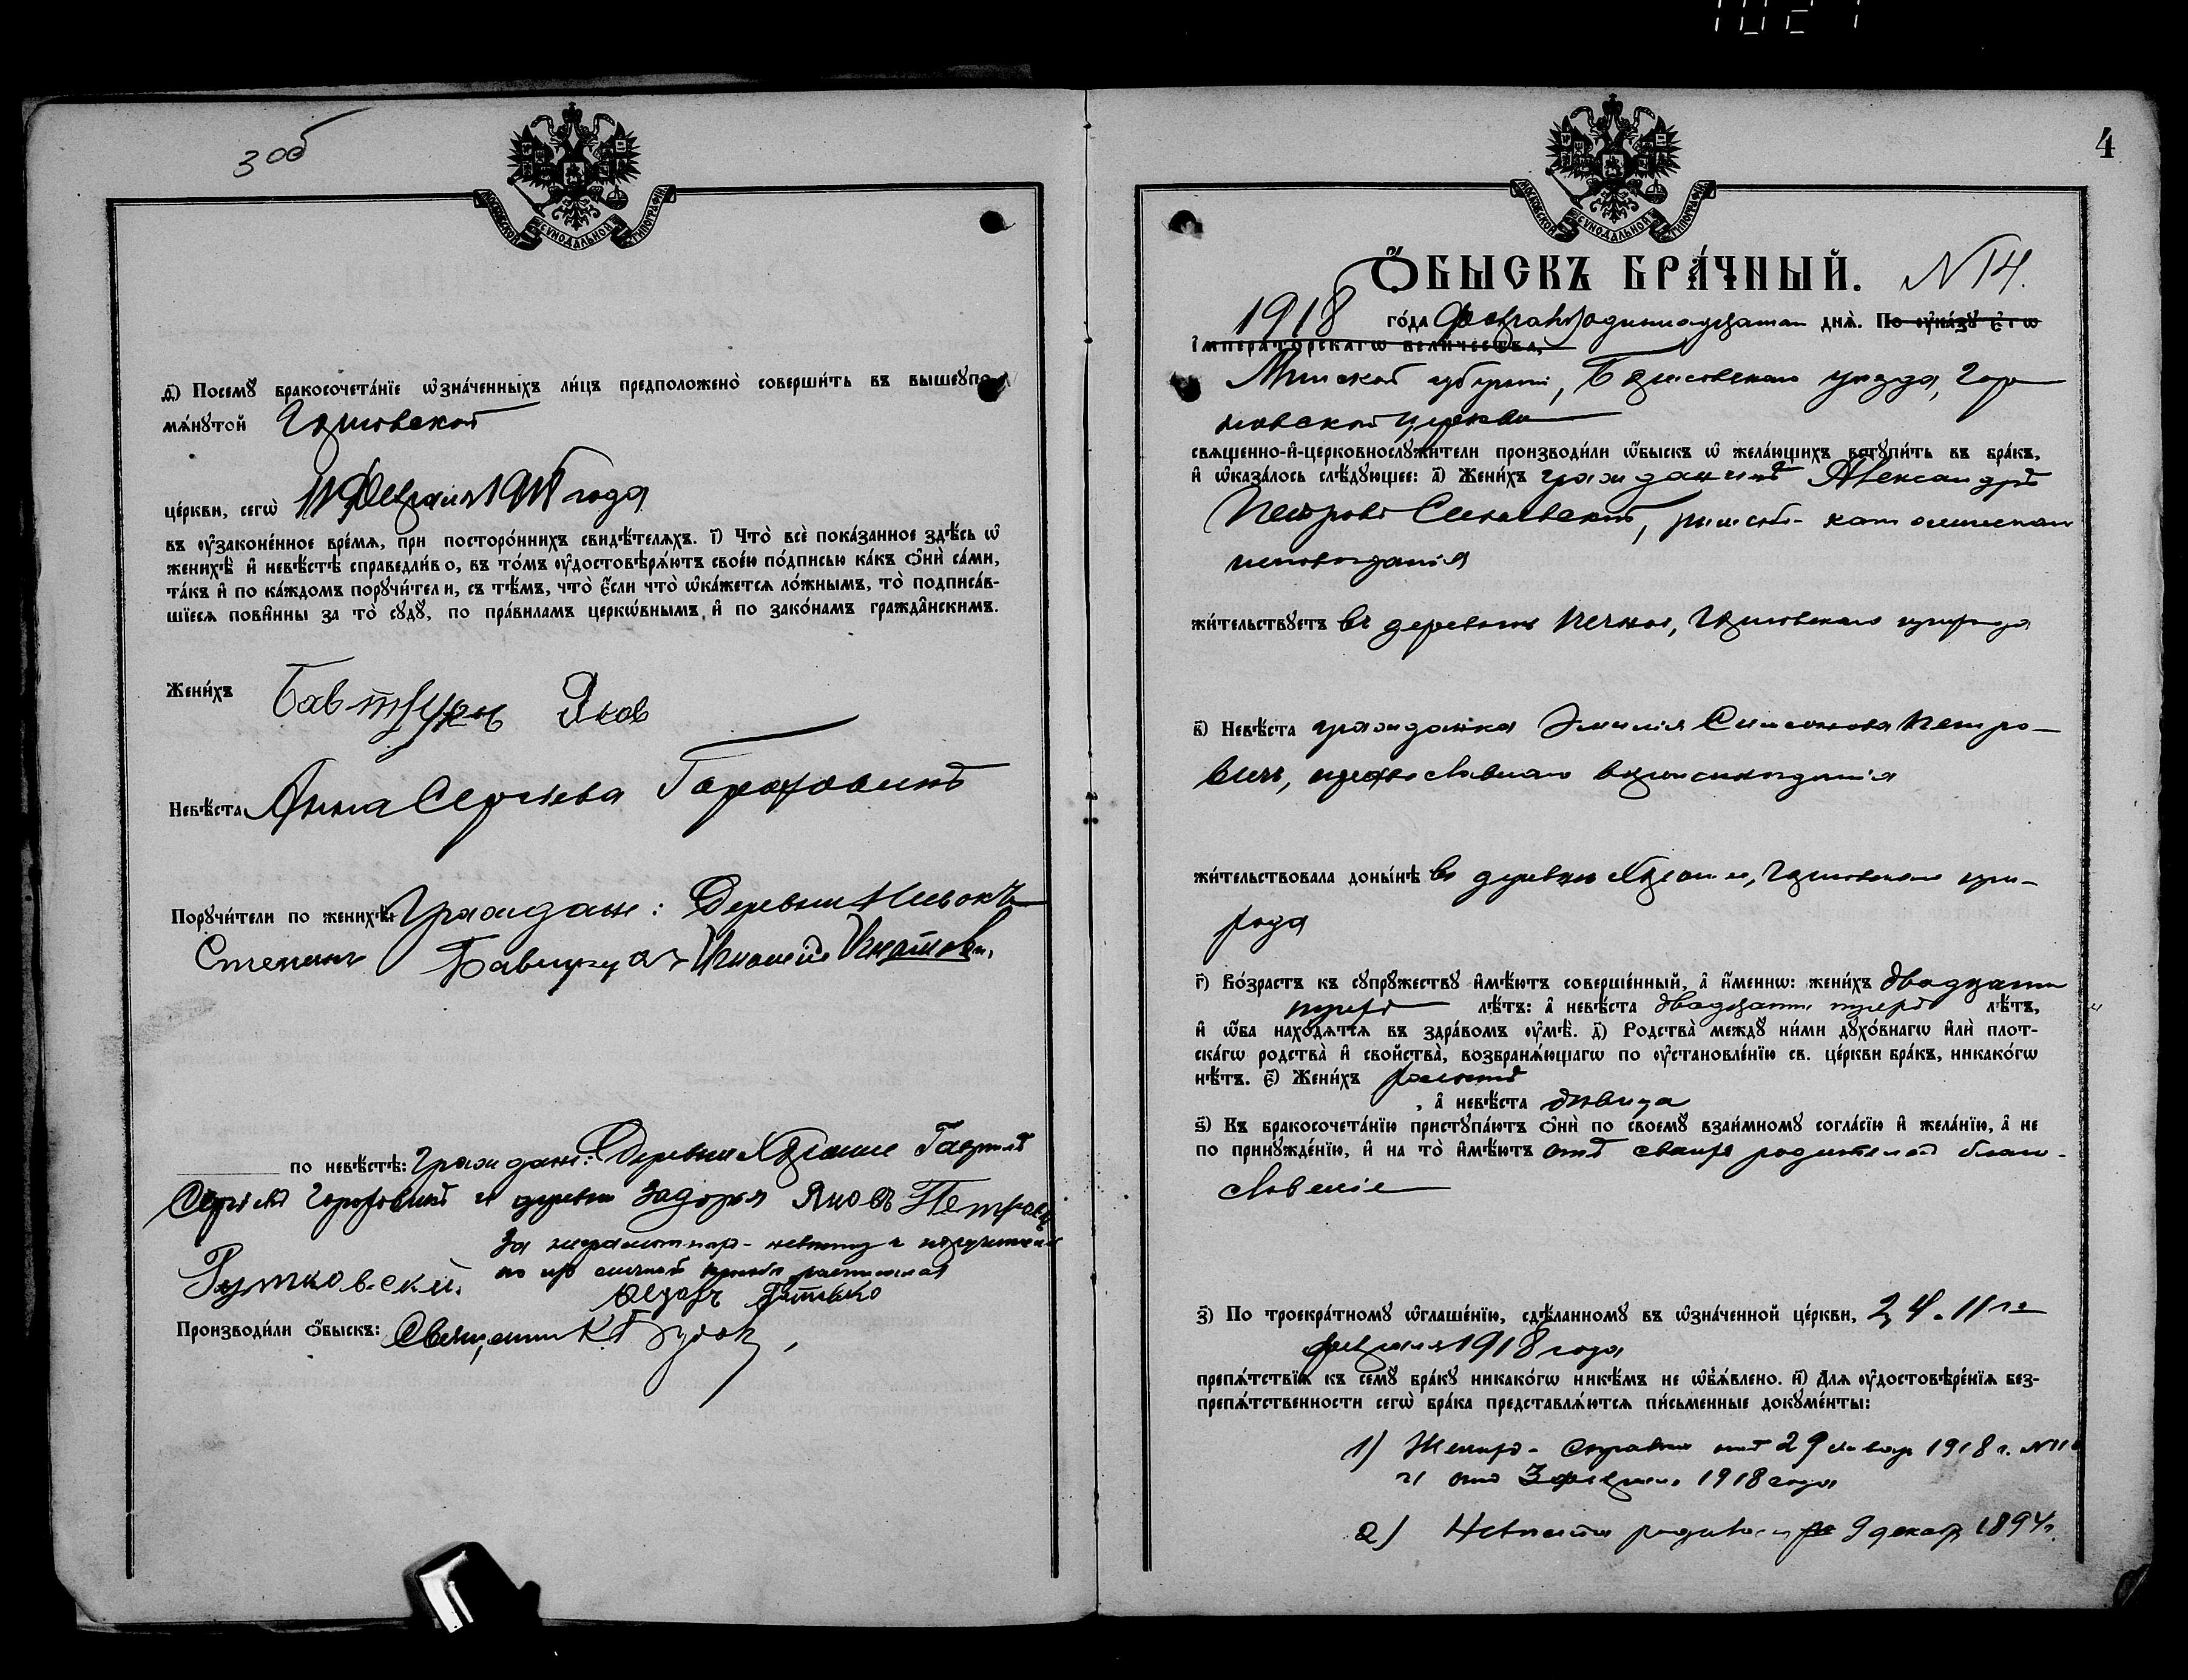 3 об
МОСКОВСКОЙ СѴНОДАЛЬНОЙ ТИПОГРАФІИ
д҃і) Посемꙋ бракосочета́нїе ѡзна́ченныхъ ли́цъ предположено̀ соверши́ть въ вышеупо-
мѧ́нꙋтой
це́ркви, сегѡ̀ 11 Февраля 1918 года
въ ᲂу҆законе́нное вре́мѧ, при посторо́ннихъ свидѣ́телѧхъ. і҃) Что̀ всѐ пока́занное здѣ́сь ѡ҆
женихѣ̀ и҆ невѣ́стѣ справедли́во, въ то́мъ ᲂу҆достовѣрѧ́ютъ свое́ю по́дписью ка́къ ѻ҆нѝ са́ми,
та́къ и҆ по ка́ждомъ порꙋчи́тели, съ тѣ́мъ, что̀ є҆́сли что̀ ѡ҆ка́жетсѧ ло́жнымъ, то̀ подписа́в-
шїесѧ пови́нны за то̀ сꙋдꙋ̀, по пра́виламъ церко́внымъ и҆ по зако́намъ гражда́нскимъ.
Жени́хъ Яков
Невѣ́ста Анна Сергіева
Порꙋчи́тели по женихѣ̀: Граждане: Деревни
Степанъ
по невѣ́стѣ: Граждане: Деревни Гавріилъ
и деревни Задорья Яковъ Петровъ
Рутковский.
За неграмотныхъ невѣсту и поручителя
по ихъ личной просьбѣ расписался
Производи́ли ѻ҆́быскъ: Священникъ
4
МОСКОВСКОЙ СѴНОДАЛЬНОЙ ТИПОГРАФІИ
Ѻ҆́БЫСКЪ БРА́ЧНЫЙ. N 14.
1918 го́да Февраля одиннадцатаго днѧ̀. По ᲂу҆ка́зꙋ є҆гѡ̀
і҆мпера́торскагѡ вели́чества,
Минской губерніи, Борисовскаго уѣзда,
церкви
свѧще́нно-и҆-церковнослꙋжи́тели производи́ли ѻ҆́быскъ ѡ҆ жела́ющихъ встꙋпи́ть въ бра́къ,
и҆ ѡ҆каза́лось слѣ́дꙋющее: а҃) Жени́хъ гражданинъ Александръ
Петровъ римско-католическаго
исповѣданія
жи́тельствꙋетъ въ деревнѣ прихода
в҃) Невѣ́ста гражданка Эмилія Симонова Петро-
вичъ, православнаго вѣроисповѣданія
жи́тельствовала доны́нѣ въ деревнѣ при-
хода
г҃) Во́зрастъ къ сꙋпрꙋ́жествꙋ и҆мѣ́ютъ соверше́нный, а҆ и҆́менно: жени́хъ двадцати
трехъ лѣ́тъ: а҆ невѣ́ста двадцати трехъ лѣ́тъ,
и҆ ѻ҆́ба нахо́дѧтсѧ въ здра́вомъ ᲂу҆мѣ̀. д҃) Родства̀ междꙋ̀ ни́ми дꙋхо́внагѡ и҆лѝ плот-
ска́гѡ родства̀ и҆ сво́йства, возбранѧ́ющагѡ по ᲂу҆становле́нїю св. це́ркви бра́къ, никако́гѡ
нѣ́тъ. є҃) Жени́хъ холостъ
, а҆ невѣ́ста дѣвица
ѕ҃) Къ бракосочета́нїю пристꙋпа́ютъ ѻ҆нѝ по своемꙋ̀ взаи́мномꙋ согла́сїю и҆ жела́нїю, а҆ не
по принꙋжде́нїю, и҆ на то̀ и҆мѣ́ютъ отъ своихъ родителей благо-
словеніе
з҃) По троекра́тномꙋ ѡ҆глаше́нїю, сдѣ́ланномꙋ въ ѡ҆зна́ченной це́ркви, 2, 4 . 11 го
февраля 1918 года
препѧ́тствїѧ къ семꙋ̀ бра́кꙋ никако́гѡ никѣ́мъ не ѡ҆б̾ѧ́влено. и҃) Длѧ̀ ᲂу҆достовѣре́нїѧ без-
препѧ́тственности сегѡ̀ бра́ка представлѧ́ютсѧ пи́сьменные докꙋме́нты:
1) Жениха - справка отъ 29 январ 1918 г.
и отъ 3 февраля 1918 года
2) Невѣста родилась 9 декабр 1894 г.